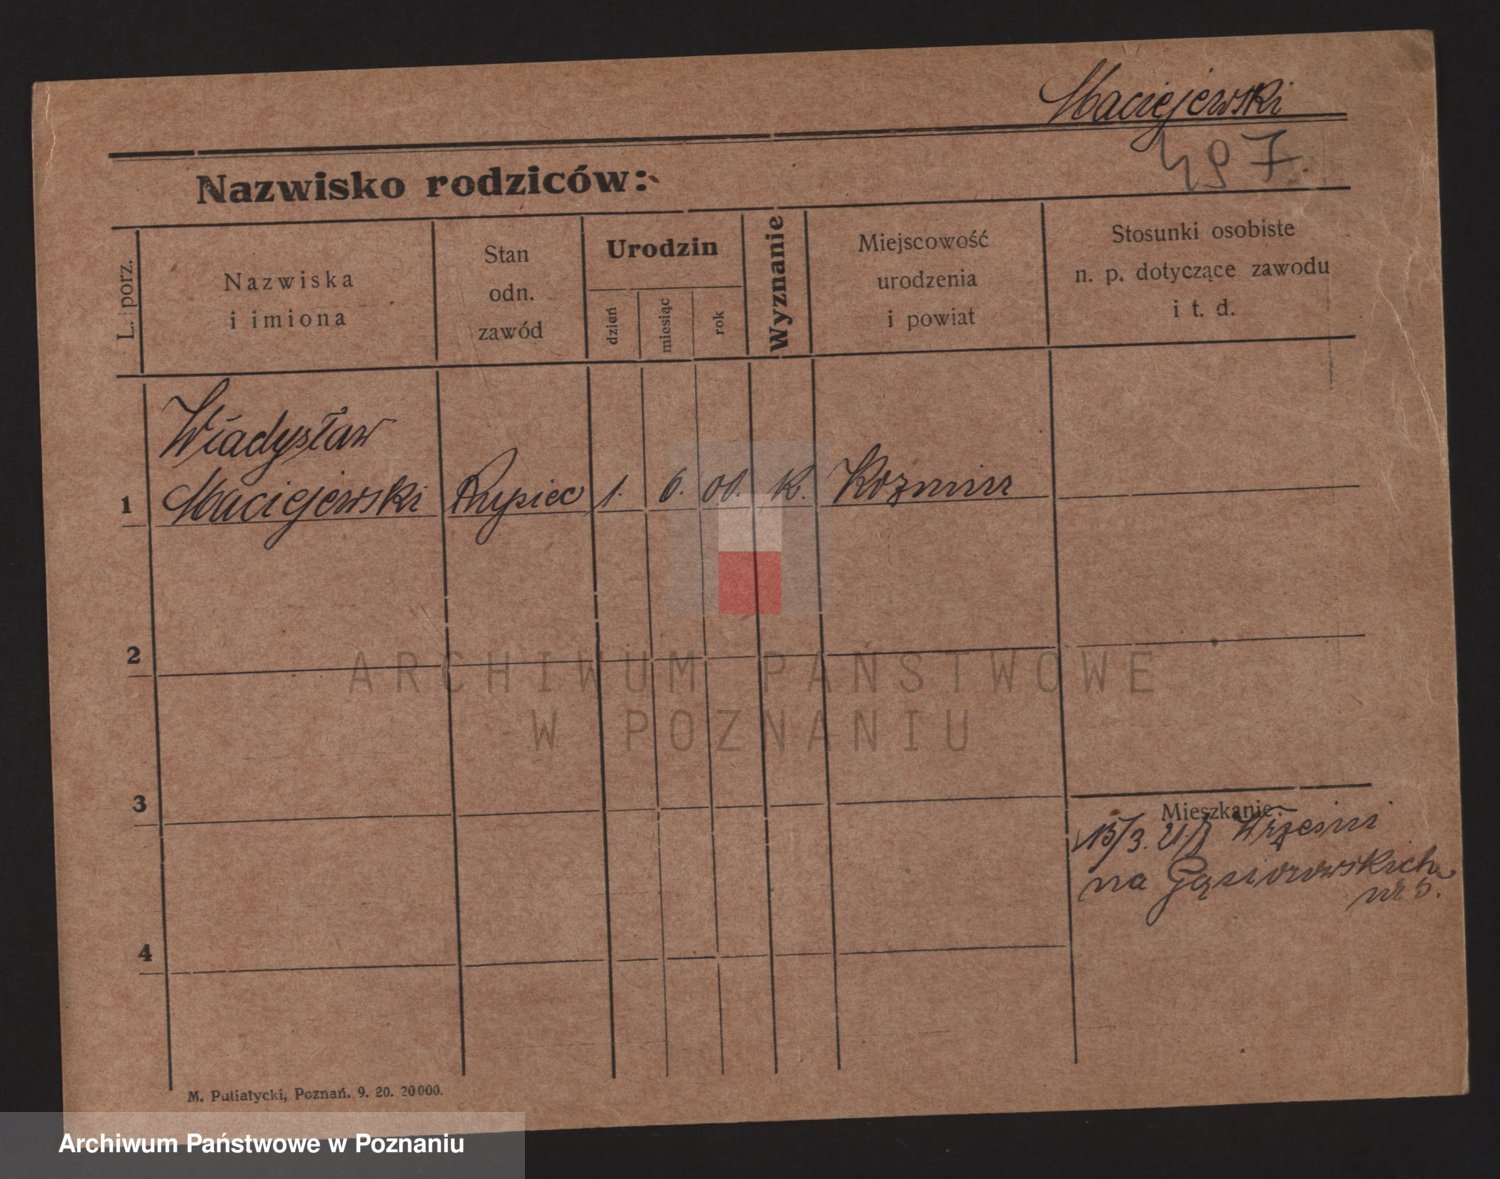 Maciejewski
497
Nazwisko rodziców:
L. porz.
Nazwiska
i imiona
Stan
odn.
zawód
Urodzin
dzień
miesiąc
rok
Wyznanie
Miejscowość
urodzenia
i powiat
Stosunki osobiste
n. p. dotyczące zawodu
i t. d.
Władysław
1 Maciejewski Kupiec 1. 6. 01. K. Kozmin
2
ARCHIWUM PAŃSTWOWE
W POZNANIU
3
Mieszkanie:
15/3. 21. z Wrześni
na Gąsiorowskich
nr 5.
4
M. Putiatycki, Poznań. 9. 20. 20000.
Archiwum Państwowe w Poznaniu